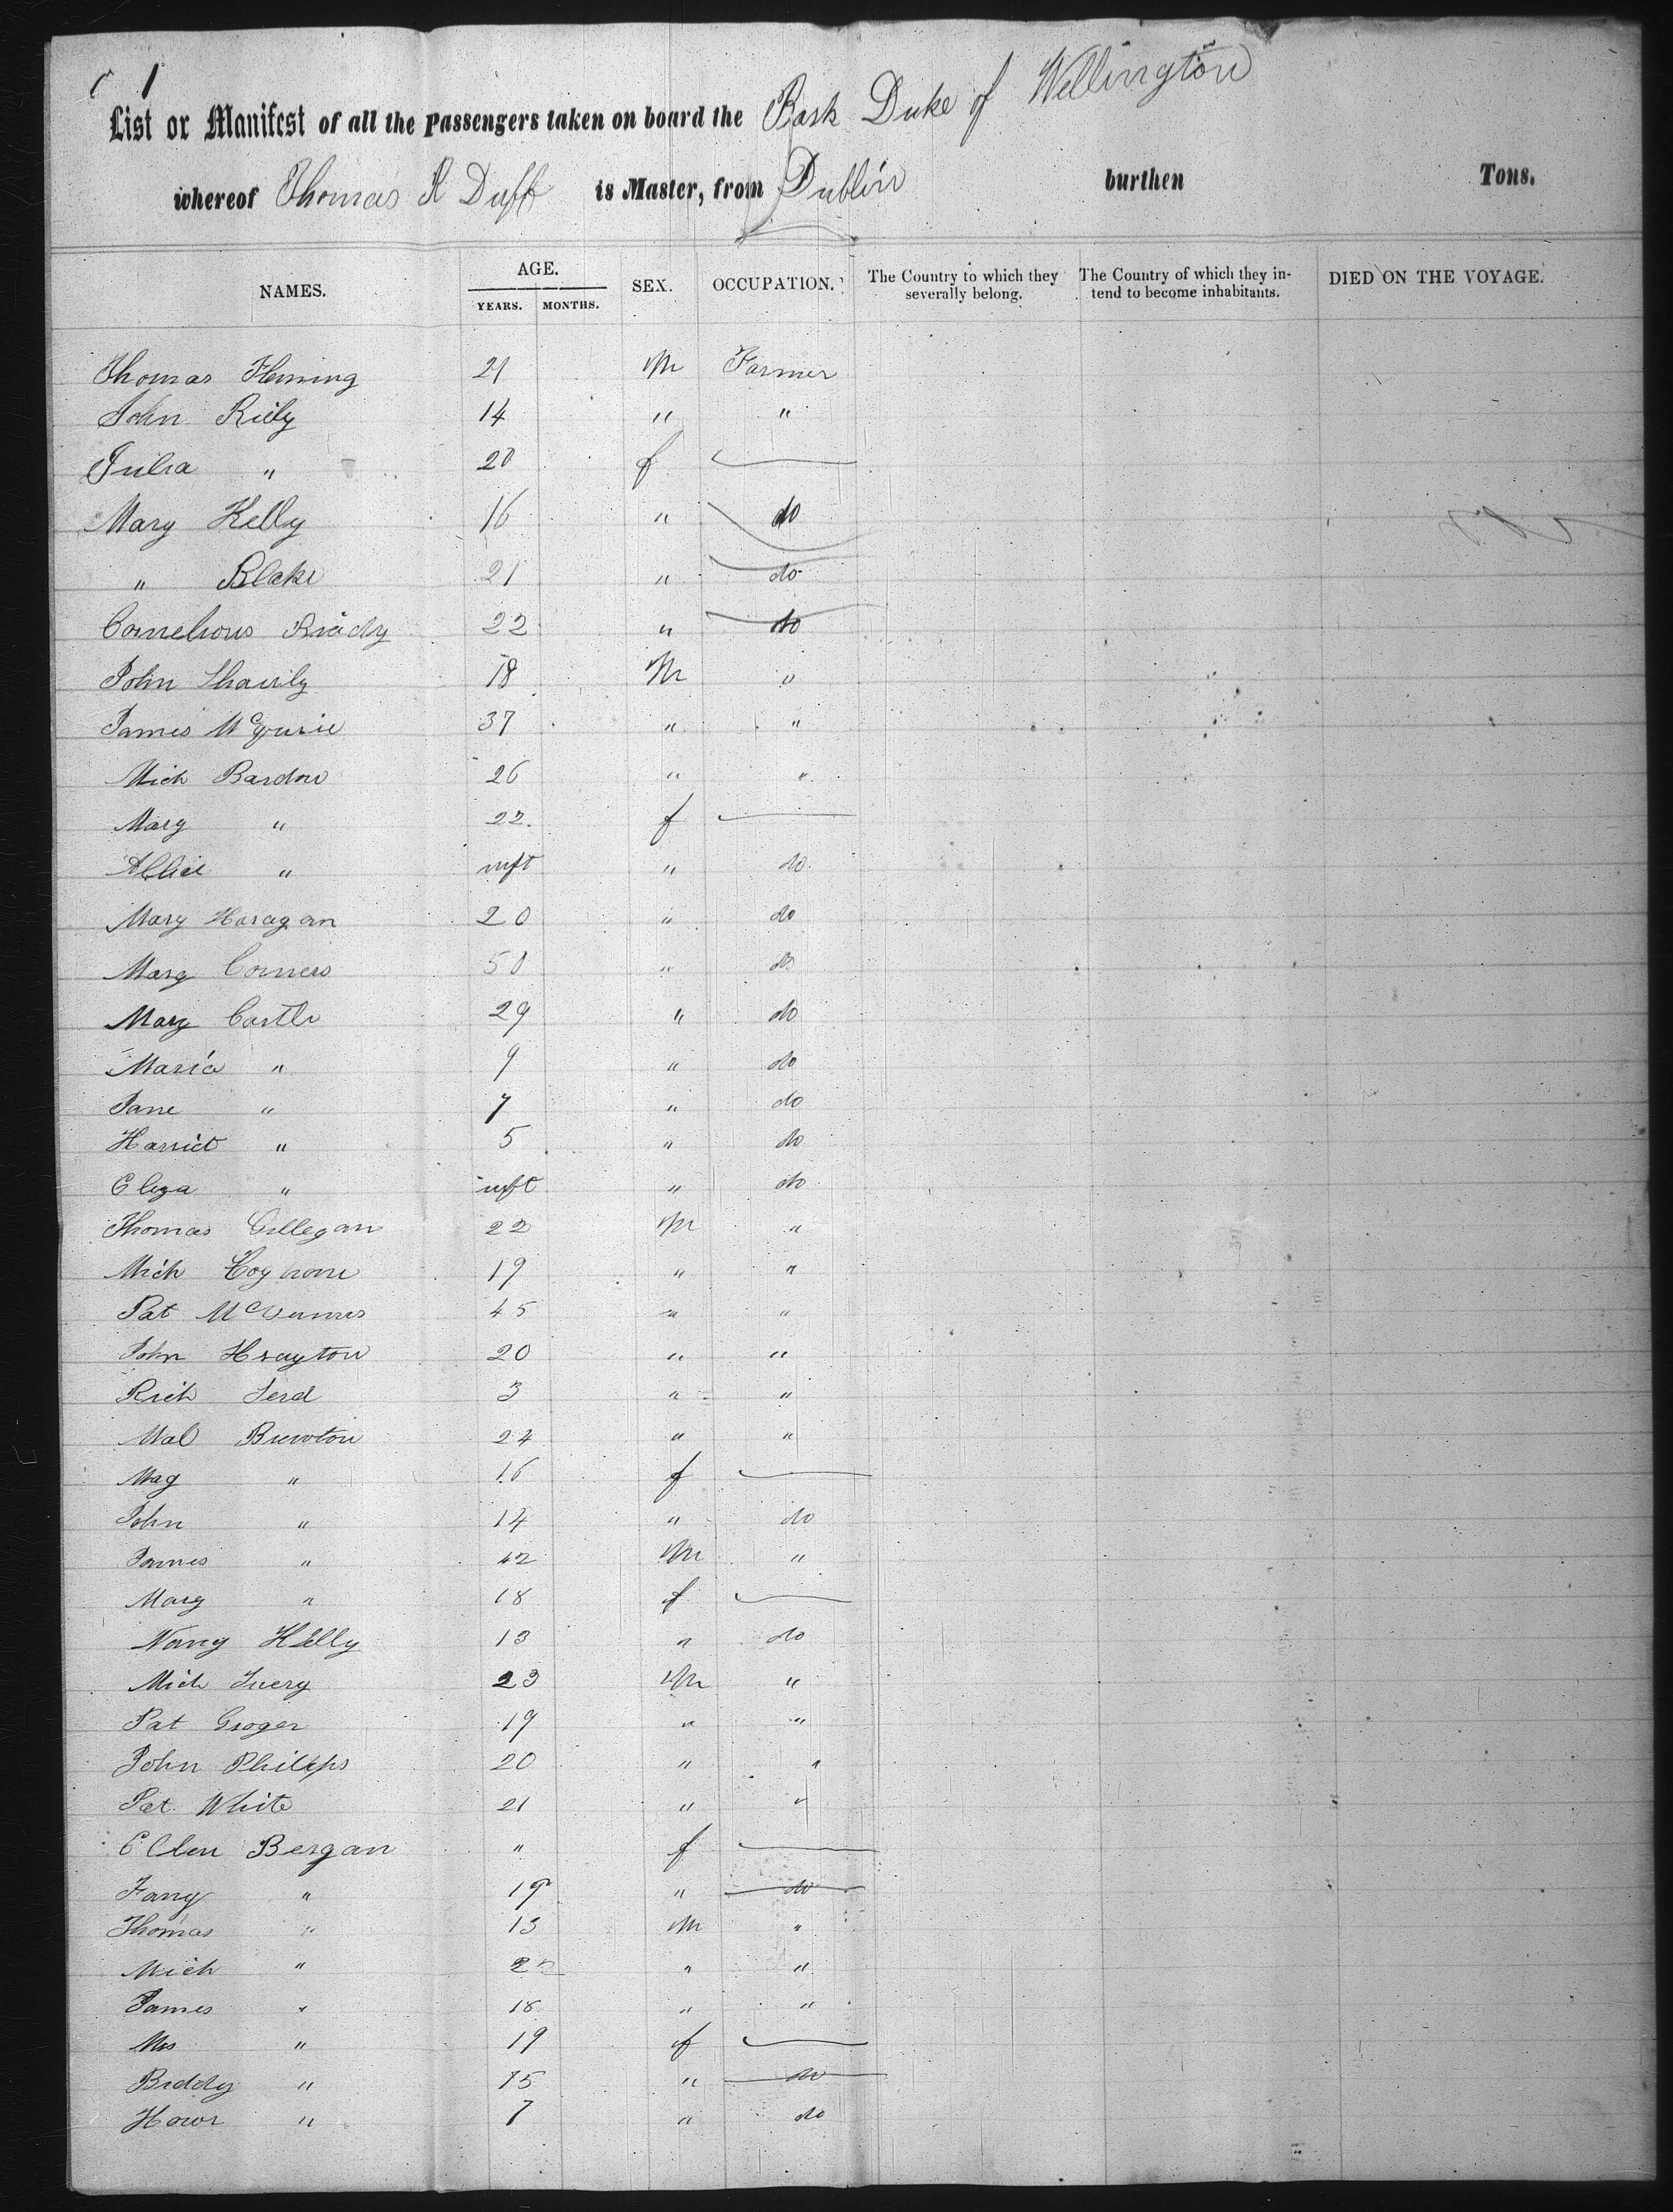 1
List or Manifest of all the Passengers taken on board the Bark Duke of Wellington
whereof Thomas R Duff is Master, from Dublin burthen Tons.
NAMES. AGE. YEARS. MONTHS. SEX. OCCUPATION. The Country to which they severally belong. The Country of which they intend to become inhabitants. DIED ON THE VOYAGE.
Thomas Fleming 21 M Farmer
John Riely 14 " "
Julia " 20 f —
Mary Kelly 16 " do
" Blake 21 " do
Cornelious 22 " do
John 18 M "
James McGurie 37 " "
Mich Bardon 26 " "
Mary " 22 f —
Allice " inft " do
Mary Haragan 20 " do
Mary Conners 50 " do
Mary Castle 29 " do
Maria " 9 " do
Jane " 7 " do
Harriet " 5 " do
Eliza " inft " do
Thomas Gillegan 22 M "
Mich 19 " "
Pat 45 " "
John Hrayton 20 " "
Rich 3 " "
Mal 24 " "
Mag " 16 f —
John " 14 " do
James " 42 M "
Mary " 18 f —
Nancy Kelly 13 " do
Mich 23 M "
Pat Groger 19 " "
John Philips 20 " "
Pat White 21 " "
Ellen Bergan " f —
Fany " 19 " do
Thomas " 13 M "
Mich " "  "
James " 18 " "
Mrs " 19 f —
Biddy " 15 " do
" 7 " do